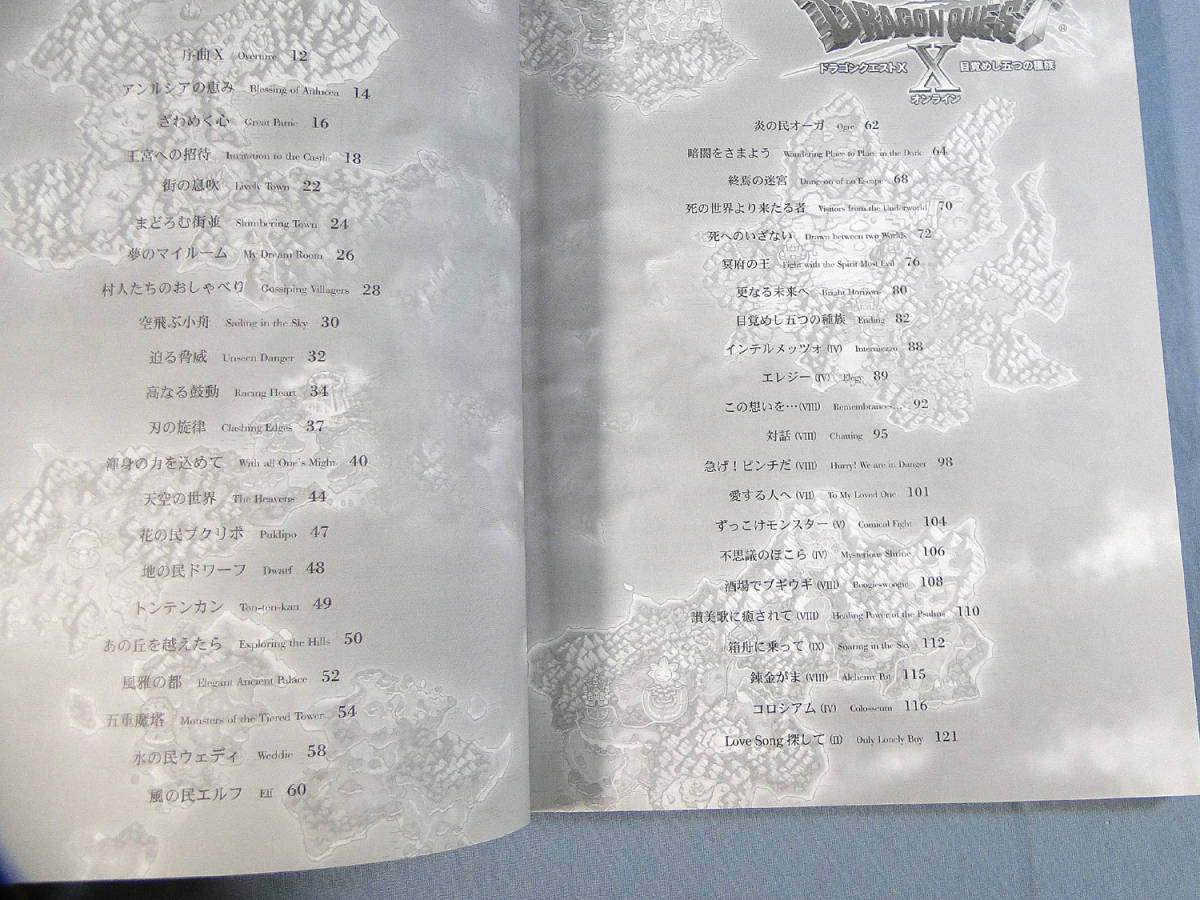 序曲X Overture 12
アンルシアの恵み Blessing of Anlucea 14
ざわめく心 Great Panic 16
王宮への招待 Invitation to the Castle 18
街の息吹 Lively Town 22
まどろむ街並 Slumbering Town 24
夢のマイルーム My Dream Room 26
村人たちのおしゃべり Gossiping Villagers 28
空飛ぶ小舟 Sailing in the Sky 30
迫る脅威 Unseen Danger 32
高なる鼓動 Racing Heart 34
刃の旋律 Clashing Edges 37
渾身の力を込めて With all One's Might 40
天空の世界 The Heavens 44
花の民プクリポ Puklipo 47
地の民ドワーフ Dwarf 48
トンテンカン Ton-ten-kan 49
あの丘を越えたら Exploring the Hills 50
風雅の都 Elegant Ancient Palace 52
五重魔塔 Monsters of the Tiered Tower 54
水の民ウェディ Weddie 58
風の民エルフ Elf 60
DRAGON QUEST
ドラゴンクエストX X 目覚めし五つの種族
オンライン
炎の民オーガ Ogre 62
暗闇をさまよう Wandering Place to Place in the Dark 64
終焉の迷宮 Dungeon of no Escape 68
死の世界より来たる者 Visitors from the Underworld 70
死へのいざない Drawn between two Worlds 72
冥府の王 Fight with the Spirit Most Evil 76
更なる未来へ Bright Horizons 80
目覚めし五つの種族 Ending 82
インテルメッツォ (IV) Intermezzo 88
エレジー (IV) Elegy 89
この想いを…(VIII) Remembrances... 92
対話 (VIII) Chatting 95
急げ!ピンチだ (VIII) Hurry! We are in Danger 98
愛する人へ (VII) To My Loved One 101
ずっこけモンスター (V) Comical Fight 104
不思議のほこら (IV) Mysterious Shrine 106
酒場でブギウギ (VIII) Boogiewoogie 108
讃美歌に癒されて (VIII) Healing Power of the Psalms 110
箱舟に乗って (IX) Soaring in the Sky 112
錬金がま (VIII) Alchemy Pot 115
コロシアム (IV) Colosseum 116
Love Song 探して (II) Only Lonely Boy 121